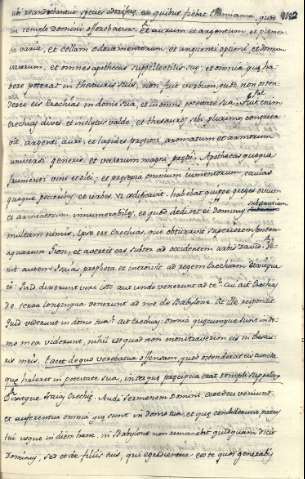 in templo Domini offerebatur. Et aurum et argentum, et pigmen
ta varia, et cellam odoramentorum, et unguenti optimi, et domum
vasorum, et omnes apothecas suppellectilis suę, et omnia quę ha
bere poterat in thesauris suis, non fuit verbum quod non osten
deret eis Ezechias in domo sua, et in omni potestate sua. Fuit enim
Ezechias dives, et inclytus valde, et thesauros sibi plurimos congrega
vit, argenti, auri, et lapidis pretiosi, aromatum et armorum
universi generis, et vasorum magni pretii. Apothecas quoque
frumenti vini et olei, et pręsepia omnium iumentorum, caulas
quoque pecorum, et urbes ędificavit. habebat quippe greges ovium
et armentorum innumerabiles, eo quod dedisset ei dominus substantiam
multam nimis. Ipse est Ezechias, qui obturavit superiorem fontem
aquarum Gion, et avertit eas subter ad occidentem urbis David.
autem Isaias propheta et introivit ad regem Ezechiam dixitque
ei Quid dixerunt viri isti aut unde venerunt ad te? Cui ait Ezechias
de terra longinqua venerunt ad me de Babylone. At ille respondit
Quid viderunt in domo tua? ait Ezechias: omnia quęcumque sunt in do
mo mea viderunt, nihil est quod non monstraverim eis in thesau
ris meis.
quę habebat in potestate sua,
Dixitque Isaias Ezechię Audi sermonem Domini ecce dies venient
et auferentur omnia quę sunt in domo tua, et quę condiderunt patres
tui usque in diem hanc, in Babylonem non remanebit quidquam dicit
Dominus, sed et de filiis tuis, qui egredientur ex te quos generabis